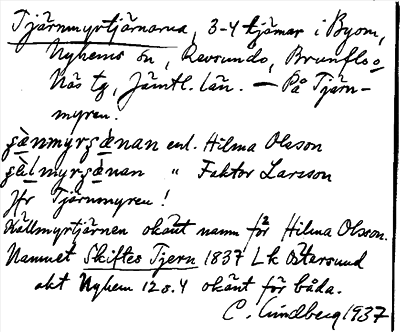 Tjärnmyrtjärnarna, 3-4 tjärnar i Byom,
Nyhems sn, Revsunds, Brunflo o
Näs tg, Jämtl. län. — På Tjärn-
myren.
enl. Hilma Olsson
" Faktor Larsson
Jfr Tjärnmyren!
Källmyrtjärnen okänt namn för Hilma Olsson.
Namnet Skiftes Tjern 1837 Lk Östersund
akt Nyhem 12 o. 4 okänt för båda.
C. Lindberg 1937